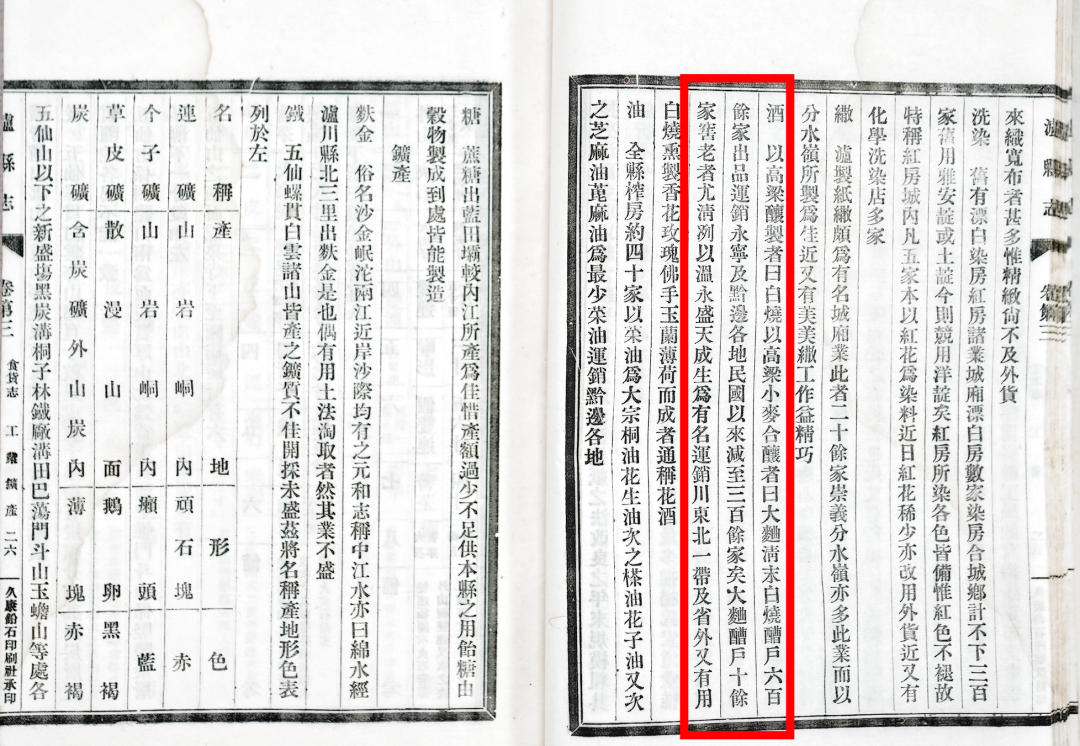 瀘縣志
來織寬布者甚多惟精緻尙不及外貨
洗染 舊有漂白染房紅房諸業城廂漂白房數家染房合城鄉計不下三百
家舊用雅安靛或土靛今則競用洋靛矣紅房所染各色皆備惟紅色不褪故
特稱紅房城內凡五家本以紅花爲染料近日紅花稀少亦改用外貨近又有
化學洗染店多家
繖 瀘製紙繖頗爲有名城廂業此者二十餘家崇義分水嶺亦多此業而以
分水嶺所製爲佳近又有美美繖工作益精巧
酒 以高粱釀製者曰白燒以高粱小麥合釀者曰大麯淸末白燒醩戶六百
餘家出品運銷永寧及黔邊各地民國以來減至三百餘家矣大麯醩戶十餘
家窖老者尤淸洌以溫永盛天成生爲有名運銷川東北一帶及省外又有用
白燒熏製香花玫瑰佛手玉蘭薄荷而成者通稱花酒
油 全縣榨房約四十家以菜油爲大宗桐油花生油次之榚油花子油又次
之芝麻油萞麻油爲最少菜油運銷黔邊各地
糖 蔗糖出藍田壩較內江所產爲佳惜產額過少不足供本縣之用飴糖由
穀物製成到處皆能製造
鑛產
麩金 俗名沙金岷沱兩江近岸沙際均有之元和志稱中江水亦曰綿水經
瀘川縣北三里出麩金是也偶有用土法淘取者然其業不盛
鐵 五仙螺貫白雲諸山皆產之鑛質不佳開採未盛茲將名稱產地形色表
列於左
名稱 產地 形色
連礦 山左岩峒內 頑石塊赤
夲子礦 山岩峒內 癩頭藍
草皮礦 散漫山面 鵝卵黑褐
炭礦 含炭礦外山炭內 薄塊赤褐
五仙山以下之新盛塲黑炭溝桐子林鐵厰溝田巴蕩門斗山玉蟾山等處各
瀘縣志 卷第三 食貨志 工業鑛產 二六 久康鉛石印刷社承印